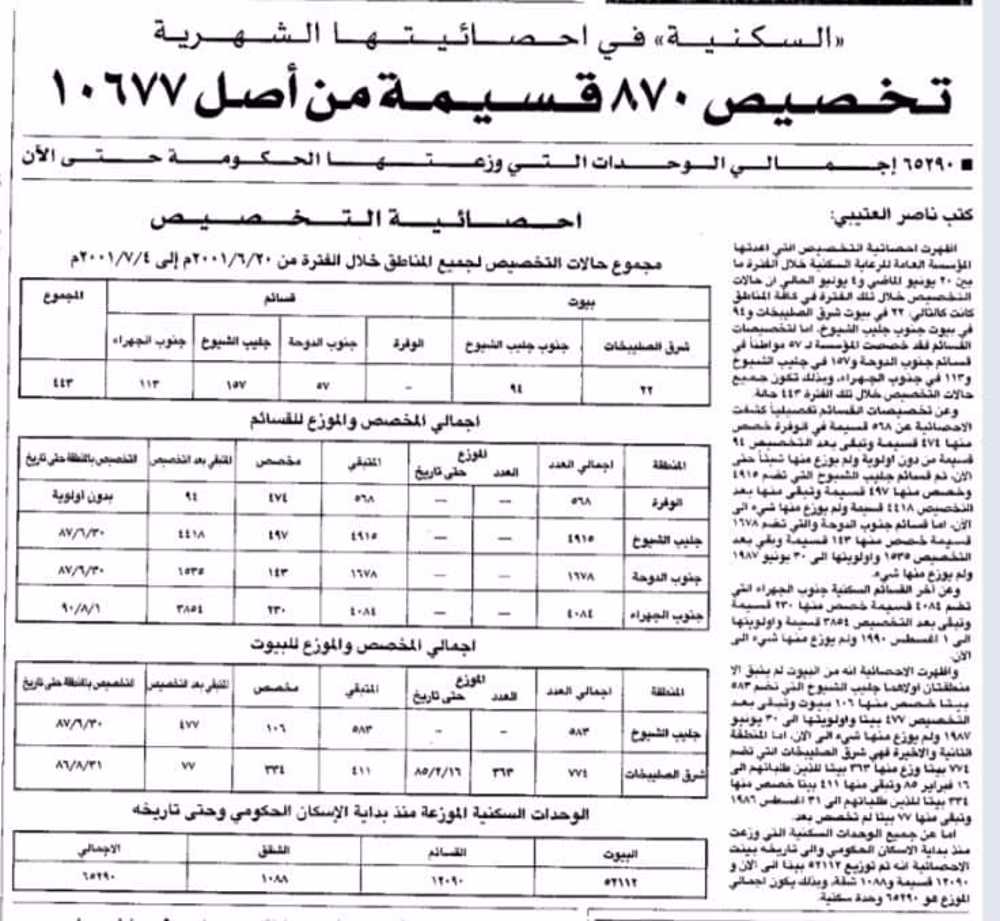 «السكنية» في احصائيتها الشهرية
تخصيص ٨٧٠ قسيمة من أصل ١٠٦٧٧
■ ٦٥٢٩٠ إجمالي الوحدات التي وزعتها الحكومة حتى الآن
كتب ناصر العتيبي:
اظهرت احصائية التخصيص التي اعدتها
المؤسسة العامة للرعاية السكنية خلال الفترة ما
بين ٢٠ يونيو الماضي و٤ يونيو الحالي ان حالات
التخصيص خلال تلك الفترة في كافة المناطق
كانت كالتالي: ٢٢ في بيوت شرق الصليبخات و٩٤
في بيوت جنوب جليب الشيوخ، اما لتخصيصات
القسائم فقد خصصت المؤسسة لـ ٥٧ مواطناً في
قسائم جنوب الدوحة و١٥٧ في جليب الشيوخ
و١١٣ في جنوب الجهراء، وبذلك تكون جميع
حالات التخصيص خلال تلك الفترة ٤٤٣ حالة.
وعن تخصيصات القسائم تفصيلياً كشفت
الاحصائية عن ٥٦٨ قسيمة في الوفرة خصص
منها ٤٧٤ قسيمة وتبقى بعد التخصيص ٩٤
قسيمة من دون اولوية ولم يوزع منها شيئاً حتى
الآن، ثم قسائم جليب الشيوخ التي تضم ٤٩١٥
وخصص منها ٤٩٧ قسيمة وتبقى منها بعد
التخصيص ٤٤١٨ قسيمة ولم يوزع منها شيء الى
الآن، اما قسائم جنوب الدوحة والتي تضم ١٦٧٨
قسيمة خصص منها ١٤٣ قسيمة وبقي بعد
التخصيص ١٥٣٥ واولويتها الى ٣٠ يونيو ١٩٨٧
ولم يوزع منها شيء.
وعن آخر القسائم السكنية جنوب الجهراء التي
تضم ٤٠٨٤ قسيمة خصص منها ٢٣٠ قسيمة
وتبقى بعد التخصيص ٣٨٥٤ قسيمة واولويتها
الى ١ اغسطس ١٩٩٠ ولم يوزع منها شيء الى
الآن.
واظهرت الاحصائية انه من البيوت لم يتبق الا
منطقتان اولاهما جليب الشيوخ التي تضم ٥٨٣
بيتا خصص منها ١٠٦ بيوت وتبقى بعد
التخصيص ٤٧٧ بيتا واولويتها الى ٣٠ يونيو
١٩٨٧ ولم يوزع منها شيء الى الآن، اما المنطقة
الثانية والاخيرة فهي شرق الصليبخات التي تضم
٧٧٤ بيتا وزع منها ٣٦٣ بيتا للذين طلباتهم الى
١٦ فبراير ٨٥ وتبقى منها ٤١١ بيتا خصص منها
٣٣٤ بيتا للذين طلباتهم الى ٣١ اغسطس ١٩٨٦
وتبقى منها ٧٧ بيتا لم تخصص بعد.
اما عن جميع الوحدات السكنية التي وزعت
منذ بداية الاسكان الحكومي والى تاريخه بينت
الاحصائية انه تم توزيع ٥٢١١٢ بيتا الى الآن و
١٢٠٩٠ قسيمة و١٠٨٨ شقة، وبذلك يكون اجمالي
الموزع هو ٦٥٢٩٠ وحدة سكنية.
احصائية التخصيص
مجموع حالات التخصيص لجميع المناطق خلال الفترة من ٢٠٠١/٦/٢٠م إلى ٢٠٠١/٧/٤م
بيوت قسائم المجموع
شرق الصليبخات جنوب جليب الشيوخ الوفرة جنوب الدوحة جليب الشيوخ جنوب الجهراء
٢٢ ٩٤ - ٥٧ ١٥٧ ١١٣ ٤٤٣
اجمالي المخصص والموزع للقسائم
المنطقة اجمالي العدد الموزع العدد حتى تاريخ المتبقي مخصص المتبقي بعد التخصيص التخصيص بالمنطقة حتى تاريخ
الوفرة ٥٦٨ — — ٥٦٨ ٤٧٤ ٩٤ بدون اولوية
جليب الشيوخ ٤٩١٥ — — ٤٩١٥ ٤٩٧ ٤٤١٨ ٨٧/٦/٣٠
جنوب الدوحة ١٦٧٨ — — ١٦٧٨ ١٤٣ ١٥٣٥ ٨٧/٦/٣٠
جنوب الجهراء ٤٠٨٤ — — ٤٠٨٤ ٢٣٠ ٣٨٥٤ ٩٠/٨/١
اجمالي المخصص والموزع للبيوت
المنطقة اجمالي العدد الموزع العدد حتى تاريخ المتبقي مخصص المتبقي بعد التخصيص التخصيص بالمنطقة حتى تاريخ
جليب الشيوخ ٥٨٣ - - ٥٨٣ ١٠٦ ٤٧٧ ٨٧/٦/٣٠
شرق الصليبخات ٧٧٤ ٣٦٣ ٨٥/٢/١٦ ٤١١ ٣٣٤ ٧٧ ٨٦/٨/٣١
الوحدات السكنية الموزعة منذ بداية الإسكان الحكومي وحتى تاريخه
البيوت القسائم الشقق الاجمالي
٥٢١١٢ ١٢٠٩٠ ١٠٨٨ ٦٥٢٩٠